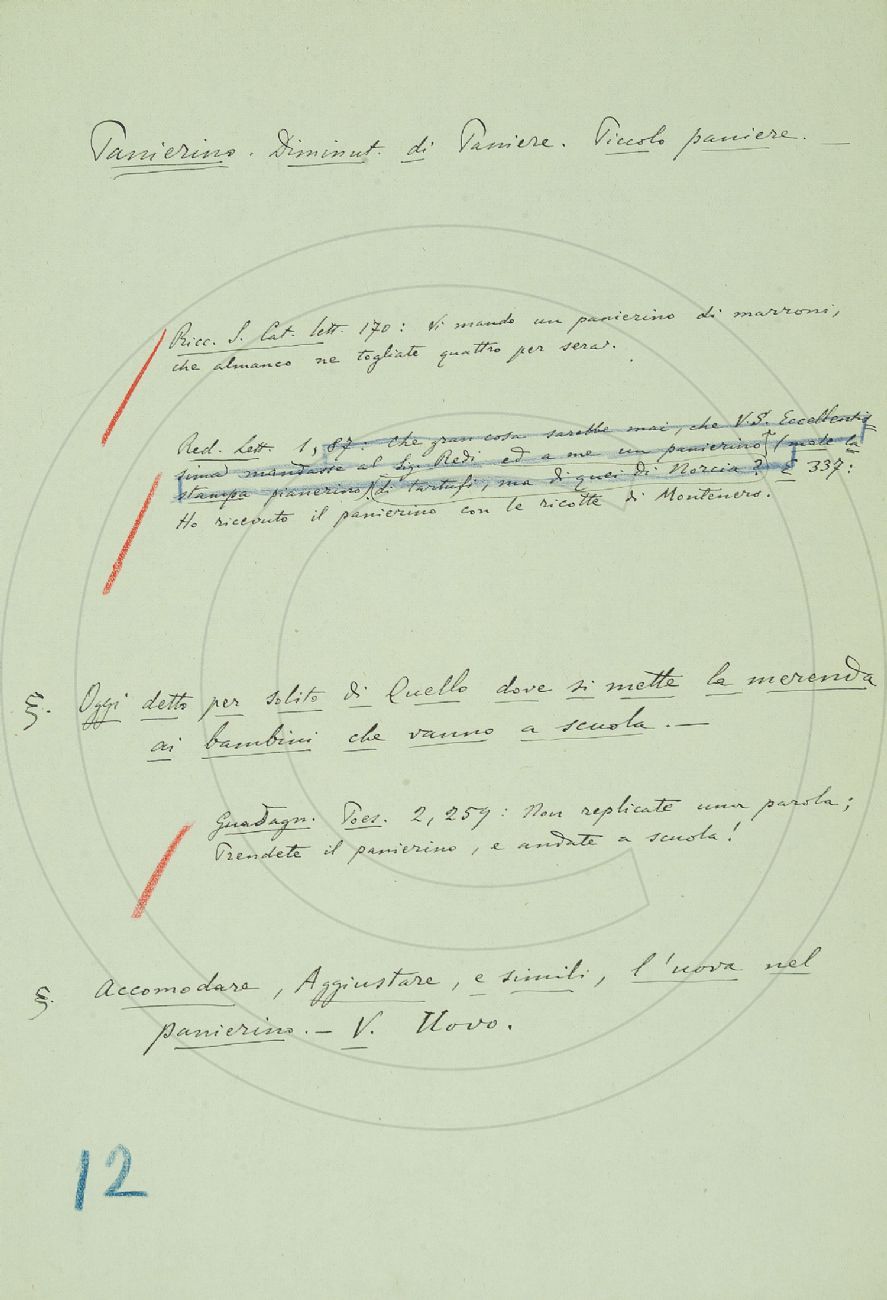 Panierino. Diminut. di Paniere. Piccolo paniere. —
Ricc. S. Cat. lett. 170: Vi mando un panierino di marroni,
che almanco ne togliate quattro per sera.
Red. Lett. 1, 87: Che gran cosa sarebbe mai, che V. S. Eccellentis
sima mandasse al Sig. Redi ed a me un panierino (male la
stampa pianerino) di tartufi, ma di quei di Norcia? E 337:
Ho ricevuto il panierino con le ricotte di Montenero.
§. Oggi detto per solito di Quello dove si mette la merenda
ai bambini che vanno a scuola. —
Guadagn. Poes. 2, 259: Non replicate una parola;
Prendete il panierino, e andate a scuola!
§. Accomodare, Aggiustare, e simili, l'uova nel
panierino. — V. Uovo.
12